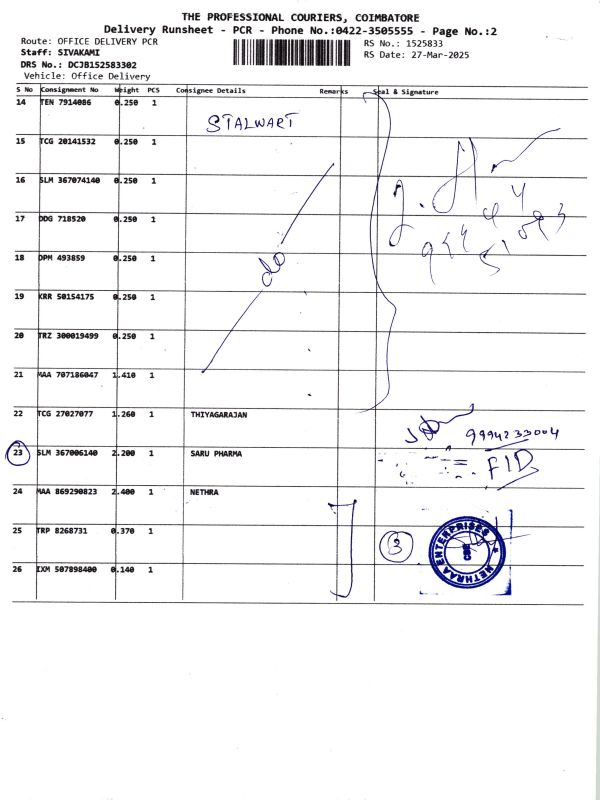 THE PROFESSIONAL COURIERS, COIMBATORE
Delivery Runsheet - PCR - Phone No.:0422-3505555 - Page No.:2
Route: OFFICE DELIVERY PCR
RS No.: 1525833
Staff: SIVAKAMI
RS Date: 27-Mar-2025
DRS No.: DCJB152583302
Vehicle: Office Delivery
S No Consignment No Weight PCS Consignee Details Remarks Seal & Signature
14 TEN 7914086 0.250 1 STALWART
15 TCG 20141532 0.250 1
16 SLM 367074140 0.250 1
17 DDG 718520 0.250 1
18 DPM 493859 0.250 1 do
19 KRR 50154175 0.250 1
20 TRZ 300019499 0.250 1
21 MAA 707186047 1.410 1
22 TCG 27027077 1.260 1 THIYAGARAJAN 9994233004
23 SLM 367006140 2.200 1 SARU PHARMA FID
24 MAA 869290823 2.400 1 NETHRA
25 TRP 8268731 0.370 1 3
26 IXM 507898400 0.140 1
NETHRAA ENTERPRISES
CBE